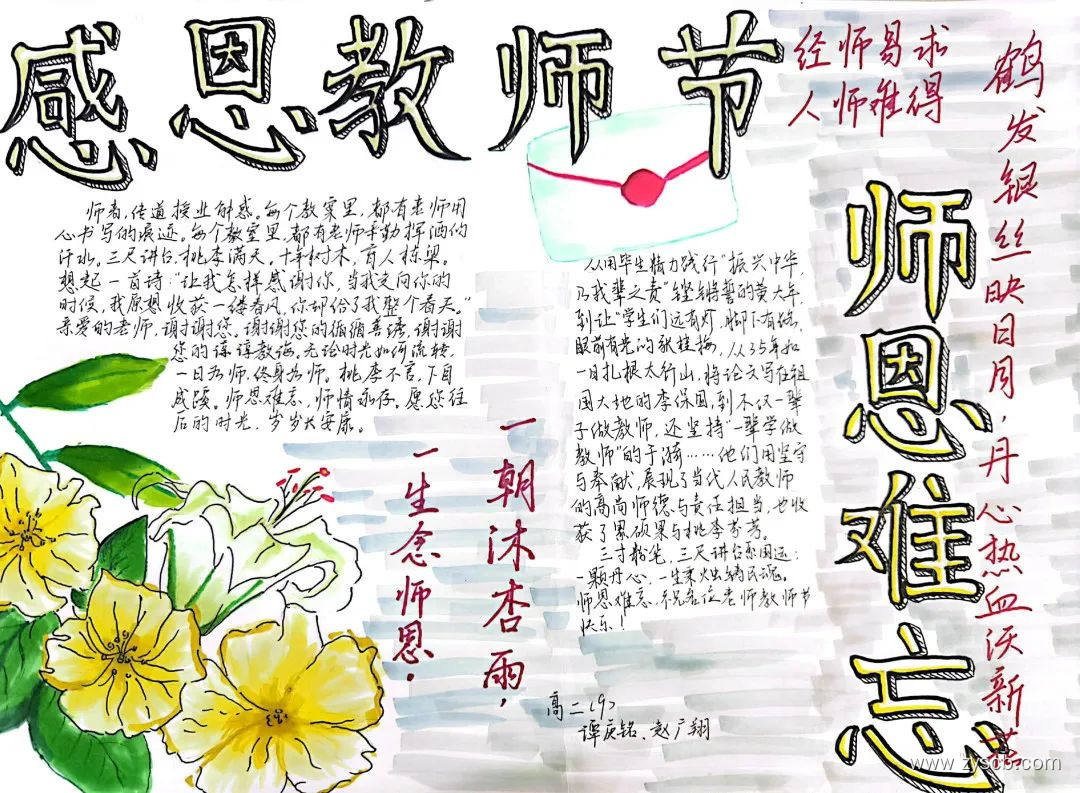 感恩教师节
经师易求
人师难得
鹤发银丝映日月，丹心热血沃新苗
师恩难忘
师者，传道授业解惑。每个教案里，都有老师用
心书写的痕迹。每个教室里，都有老师辛勤挥洒的
汗水。三尺讲台，桃李满天。十年树木，百人栋梁。
想起一首诗：“让我怎样感谢你，当我走向你的
时候，我原想收获一缕春风，你却给了我整个春天。”
亲爱的老师，谢谢您，谢谢您的循循善诱，谢谢
您的谆谆教诲，无论时光如何流转，
一日为师，终身为师。桃李不言，下自
成蹊。师恩难忘，师情永存。愿您往
后的时光，岁岁火安康。
从用毕生精力践行“振兴中华，
乃我辈之责”铿锵誓的黄大年，
到让“学生们远有灯，脚下有路，
眼前有光的张桂梅，从35年如
一日扎根太行山，将论文写在祖
国大地的李保国，到不仅一辈
子做教师，还坚持“一辈学做
教师”的于漪……他们用坚守
与奉献，展现了当代人民教师
的高尚师德与责任担当，也收
获了累硕果与桃李芬芳。
三寸粉笔，三尺讲台系国运；
一颗丹心，一生秉烛铸民魂。
师恩难忘，祝各位老师教师节
快乐！
一朝沐杏雨，
一生念师恩。
高二（9）
谭庆铭、赵广翔
www.zyscb.com